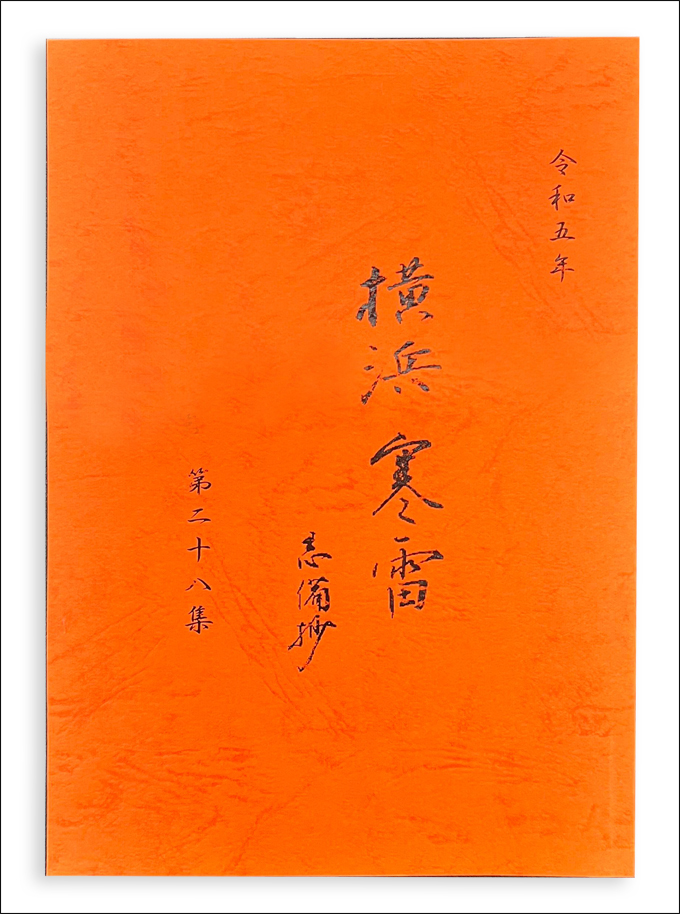 令和五年
横浜寒雷
忘備抄
第二十八集